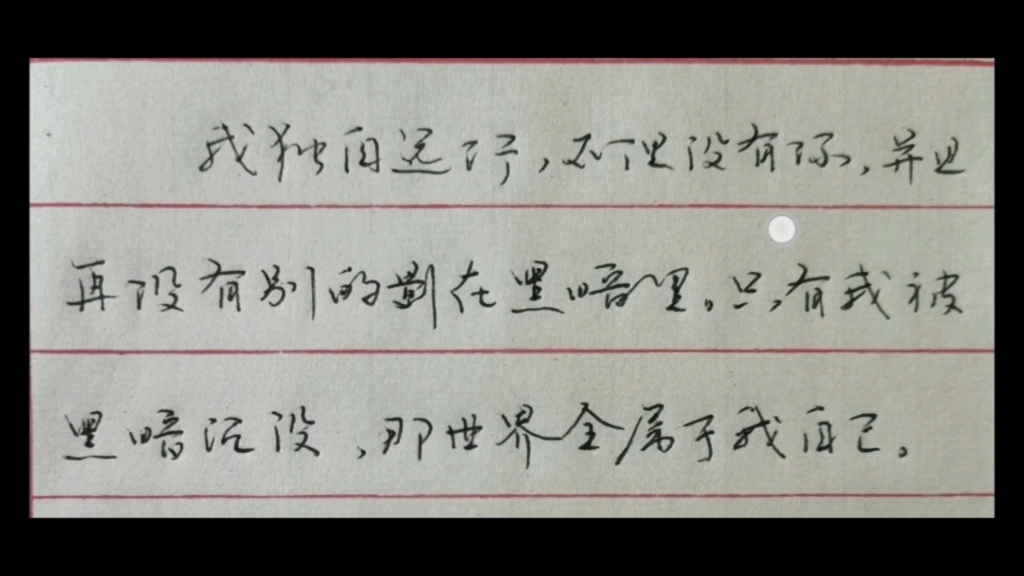 我独自远行，不但没有你，并且
再没有别的影在黑暗里。只有我被
黑暗沉没，那世界全属于我自己。